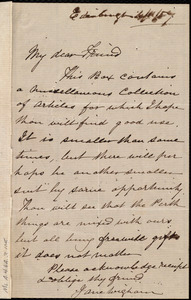 Edinburgh
My dear Friend
This Box contains
a miscellaneous Collection
of articles for which I hope
thou will find good use.
It is smaller than some
times, but there will per
haps be another smaller
sent by same opportunity
Thou will see that the Perth
things are mixed with ours
but all being freewill gifts
it does not matter
Please acknowledge receipt
& oblige thy friend
Jane Wigham